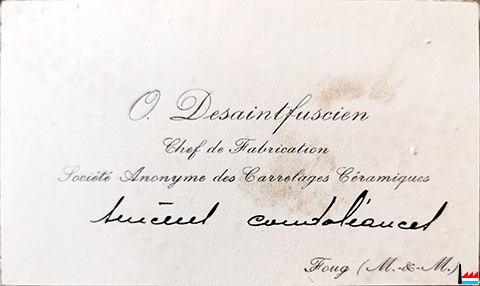 O. Desaintfuscien
Chef de Fabrication
Société Anonyme des Carrelages Céramiques
sincères condoléances
Foug (M.-&-M.)